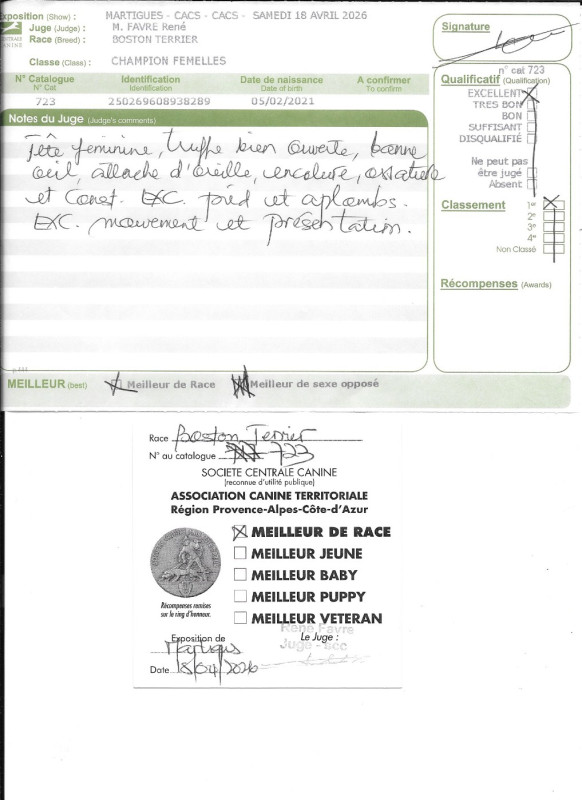 Exposition (Show) : MARTIGUES - CACS - CACS - SAMEDI 18 AVRIL 2026
Juge (Judge) : M. FAVRE René
Race (Breed) : BOSTON TERRIER
Classe (Class) : CHAMPION FEMELLES
N° Catalogue Identification Date de naissance A confirmer
N° Cat Identification Date of birth To confirm
723 250269608938289 05/02/2021
Notes du Juge (Judge's comments)
Tête féminine, truffe bien ouverte, bonne
oeil, attache d'oreille, encolure, ossature
et Const. EXC. pied et aplombs.
EXC. mouvement et présentation.
MEILLEUR (best) Meilleur de Race Meilleur de sexe opposé
Signature
n° cat 723
Qualificatif (Qualification)
EXCELLENT
TRES BON
BON
SUFFISANT
DISQUALIFIÉ
Ne peut pas
être jugé
Absent
Classement 1er
2e
3e
4e
Non Classé
Récompenses (Awards)
Race Boston Terrier
N° au catalogue 723
SOCIETE CENTRALE CANINE
(reconnue d'utilité publique)
ASSOCIATION CANINE TERRITORIALE
Région Provence-Alpes-Côte-d'Azur
MEILLEUR DE RACE
MEILLEUR JEUNE
MEILLEUR BABY
MEILLEUR PUPPY
MEILLEUR VETERAN
Récompenses remises
sur le ring d'honneur.
René Favre
Juge - scc
Exposition de Le Juge :
Martigues
Date 18/04/2026